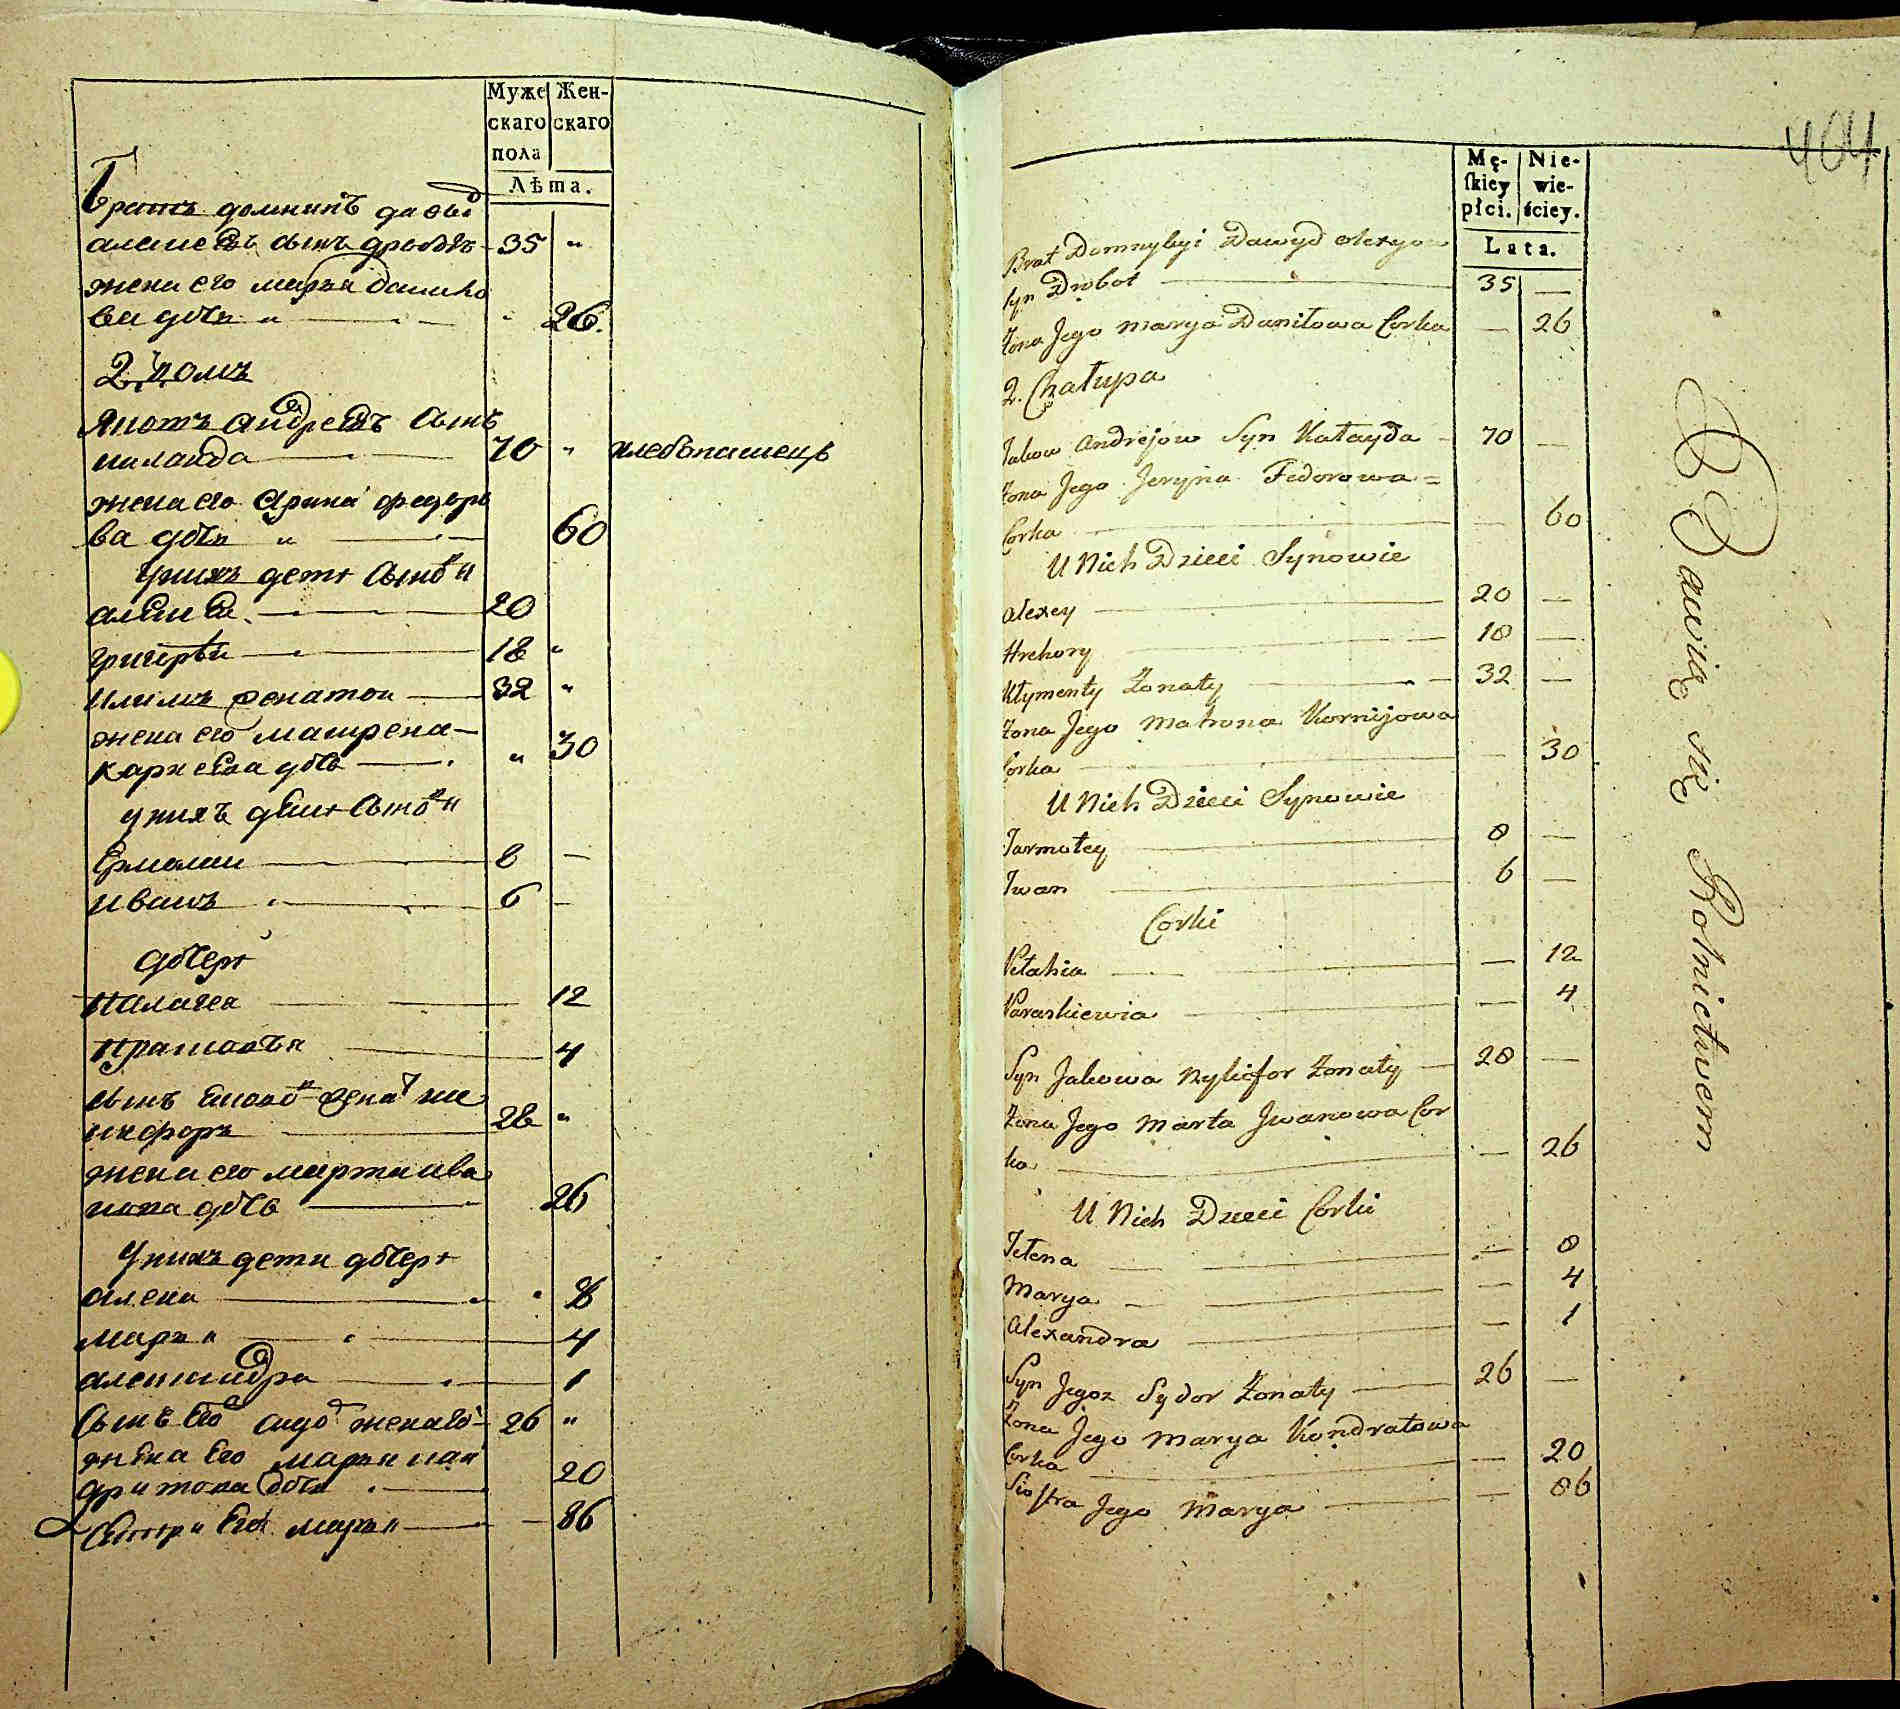 Муже Жен-
скаго скаго
пола
Лѣта.
братъ домникъ давыд
алексеевъ сынъ дроботъ 35 "
жена его марья данило
ва дочь " " 26.
2. домъ
Яковъ андреевъ сынъ
калаида 70 " хлебопашець
жена его Ярина федоро
ва дочь " 60
у нихъ дети сыновя
алексей 20
григорѣй 18 "
климъ женатои 32 "
жена его матрена
карнеева дочь " 30
у нихъ дети сыновя
Ермолаи 8 —
иванъ 6 —
дочери
палагея 12
прасковья 4
сынъ яковов женат ни
кифоръ 28 "
жена его марта ива
нова дочь 26
у нихъ дети дочери
алена 8
марья 4
александра 1
сынъ его сидор женатъ 26 "
жена его марья кон
дратова дочь 20
Сестра его марья — 86
404
Mę- Nie-
skiey wie-
płci. ściey.
Lata.
Brat Domnykyi Dawyd Alexyow
syn Drobot 35 —
żona Jego Marya Daniłowa Corka — 26
2. Chałupa
Jakow Andrejow Syn Kałayda 70 —
żona Jego Jeryna Fedorowa =
Corka — 60
U Nich Dzieci Synowie
Alexey 20 —
Hrehory 18 —
Kłymenty Żonaty 32 —
żona Jego Matrona Kornijowa
Corka — 30
U Nich Dzieci Synowie
Jarmołey 8 —
Iwan 6 —
Corki
Pełahia — 12
Paraskiewia — 4
Syn Jakowa Nykifor Żonaty 28 —
żona Jego Marta Jwanowa Cor
ka — 26
U Nich Dzieci Corki
Jełena — 8
Marya — 4
Alexandra — 1
Syn Jegoz Sydor Żonaty 26 —
Żona Jego Marya Kondratowa
Corka — 20
Siostra Jego Marya — 86
Bawią się Rolnictwem